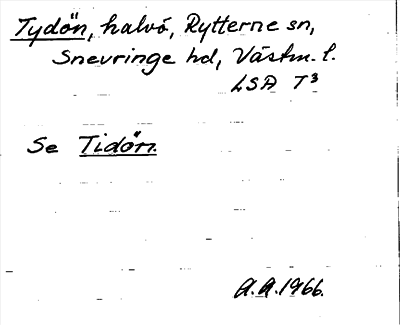 Tydön, halvö, Rytterne sn,
Snevringe hd, Västm. l.
LSA T³
Se Tidön.
A.A. 1966.